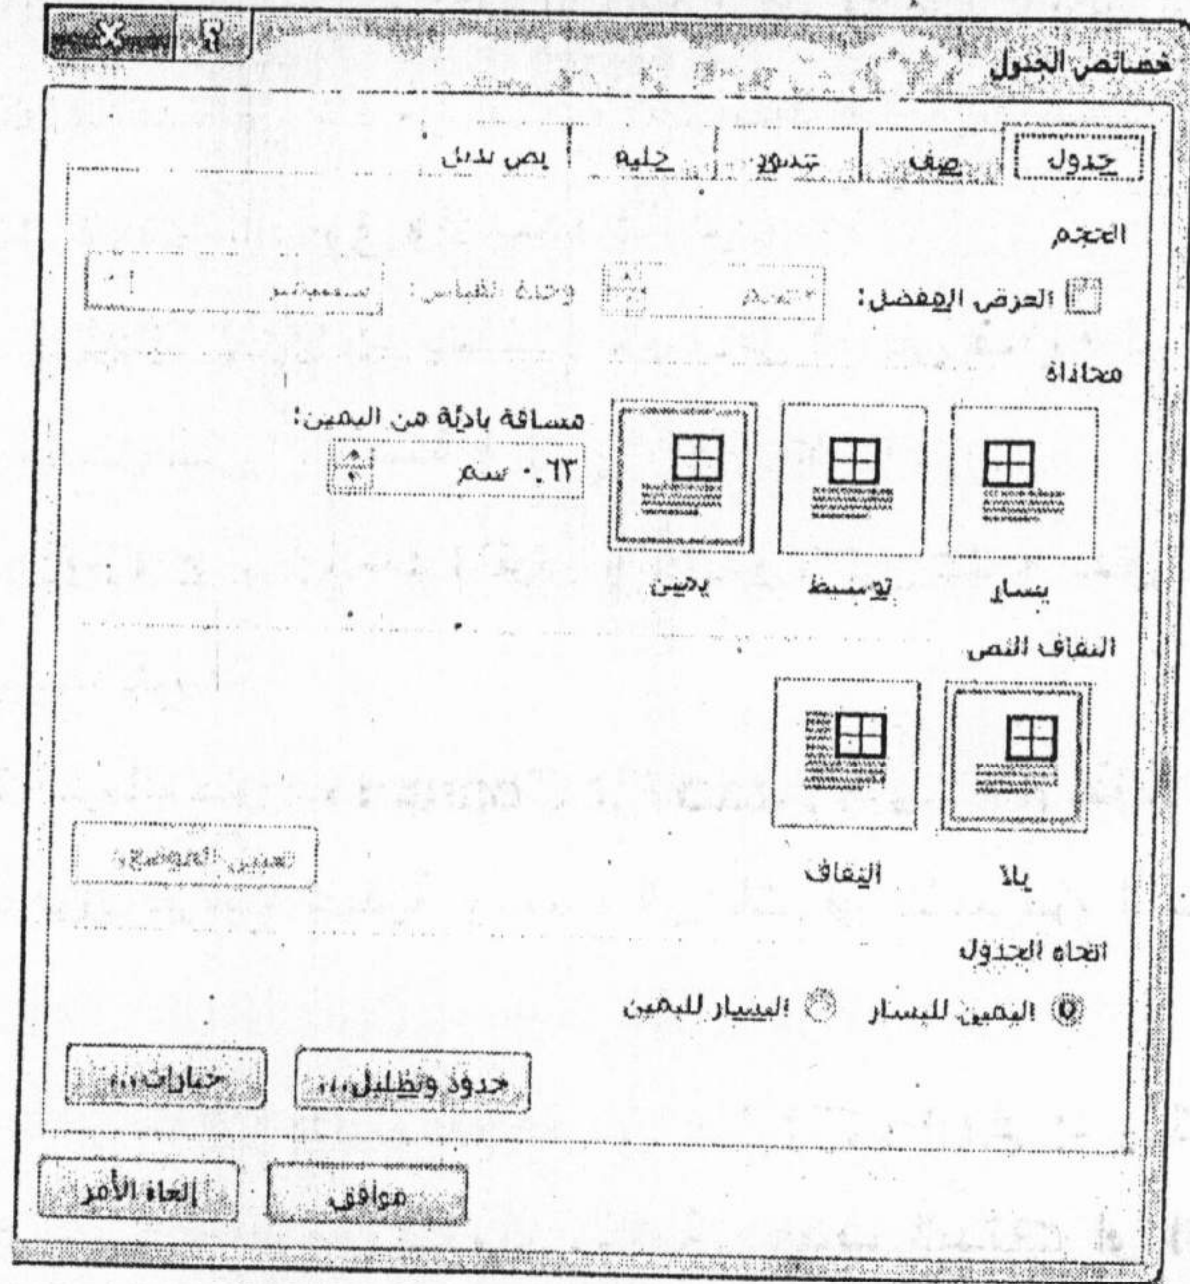 خصائص الجدول
جدول صف عمود خلية نص بديل
الحجم
العرض المفضل: ٠ سم وحدة القياس: سنتيمتر
محاذاة
مسافة بادئة من اليمين:
٠.٦٣ سم
يسار توسيط يمين
التفاف النص
بلا التفاف
تعيين الموضع
اتجاه الجدول
اليمين لليسار اليسار لليمين
حدود وتظليل... خيارات...
موافق إلغاء الأمر